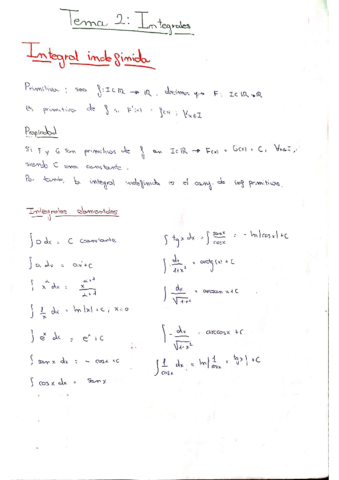 Tema 2: Integrales
Integral indefinida
Primitiva: sea f: I⊂ℝ → ℝ, decimos que F: I⊂ℝ→ℝ
es primitiva de f si F'(x) = f(x), ∀x∈I
Propiedad
Si F y G son primitivas de f en I⊂ℝ → F(x) = G(x) + C, ∀x∈I,
siendo C una constante.
Por tanto, la integral indefinida es el conj. de las primitivas.
Integrales elementales
∫ 0 dx = C constante
∫ a dx = ax + C
∫ xᵅ dx = x^(α+1)/(α+1)
∫ 1/x dx = ln|x| + C, x≠0
∫ eˣ dx = eˣ + C
∫ sen x dx = - cos x + C
∫ cos x dx = sen x
∫ tg x dx = ∫ sen x/cos x = - ln|cos x| + C
∫ dx/(1+x²) = arctg(x) + C
∫ dx/√(1-x²) = arcsen x + C
∫ - dx/√(1-x²) = arccos x + C
∫ 1/cos x dx = ln|1/cos x + tg x| + C